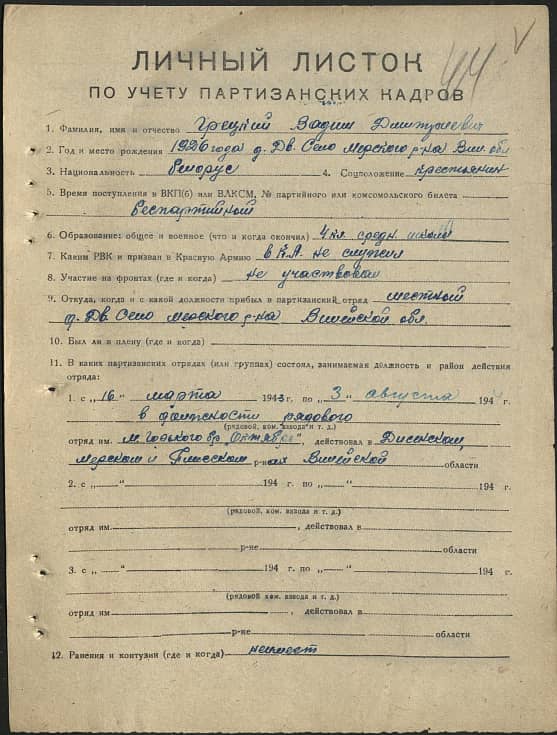 44 V
ЛИЧНЫЙ ЛИСТОК
ПО УЧЕТУ ПАРТИЗАНСКИХ КАДРОВ
1. Фамилия, имя и отчество Грецкий Вадим Дмитриевич
2. Год и место рождения 1926 года д. Дв. Село Мерского р-на Вил. обл
3. Национальность белорус 4. Соцположение крестьянин
5. Время поступления в ВКП(б) или ВЛКСМ, № партийного или комсомольского билета
беспартийный
6. Образование: общее и военное (что и когда окончил) 4 кл средн. школы
7. Каким РВК и призван в Красную Армию в К.А. не служил
8. Участие на фронтах (где и когда) не участвовал
9. Откуда, когда и с какой должности прибыл в партизанский отряд местный
д. Дв. Село Мерского р-на Вилейской обл.
10. Был ли в плену (где и когда)
11. В каких партизанских отрядах (или группах) состоял, занимаемая должность и район действия
отряда:
1. с „16“ марта 1943 г. по „3“ августа 194 г.
в должности рядового
(рядовой, ком. взвода и т. д.)
отряд им. М. Горького бр. Октября", действовал в Дисненском,
Мерском и Плисском р-нах Вилейской области
2. с „ “ 194 г. по „ “ 194 г.
(рядовой, ком. взвода и т. д.)
отряд им. , действовал в
р-не области
3. с „ “ 194 г. по „ “ 194 г.
(рядовой, ком. взвода и т. д.)
отряд им , действовал в
р-не области
12. Ранения и контузии (где и когда) не имеет